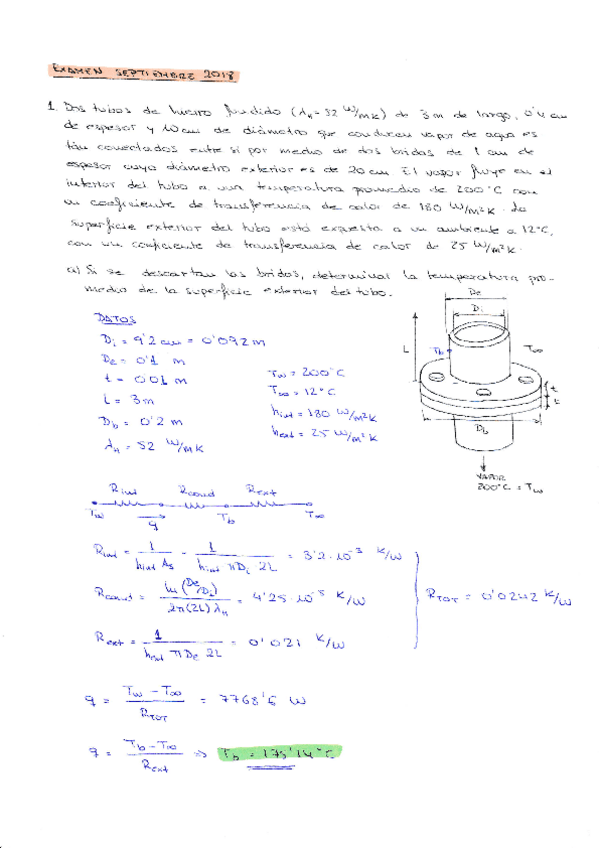 EXAMEN SEPTIEMBRE 2018
1. Dos tubos de hierro fundido (λh = 52 W/mK) de 3m de largo, 0'4 cm
de espesor y 10cm de diámetro que conducen vapor de agua es
tán conectados entre sí por medio de dos bridas de 1 cm de
espesor cuyo diámetro exterior es de 20 cm. El vapor fluye en el
interior del tubo a una temperatura promedio de 200°C con
un coeficiente de transferencia de calor de 180 W/m²K. La
superficie exterior del tubo está expuesta a un ambiente a 12°C,
con un coeficiente de transferencia de calor de 25 W/m²K.
a) Si se descartan las bridas, determinar la temperatura pro-
medio de la superficie exterior del tubo.
DATOS
Di = 9'2 cm = 0'092 m
De = 0'1 m
t = 0'01 m
L = 3m
Db = 0'2 m
λh = 52 W/mK
Tw = 200°C
T∞ = 12°C
hint = 180 W/m²K
hext = 25 W/m²K
De
Di
L
Tb
T∞
t
t
Db
VAPOR
200°C = Tw
Rint Rcond Rext
Tw q Tb T∞
Rint = 1 / (hint As) = 1 / (hint π Di 2L) = 3'2·10⁻³ K/W
Rcond = ln(De/Di) / (2π(2L) λh) = 4'25·10⁻⁵ K/W
RTOT = 0'0242 K/W
Rext = 1 / (hext π De 2L) = 0'021 K/W
q = (Tw - T∞) / RTOT = 7768'5 W
q = (Tb - T∞) / Rext ⇒ Tb = 175'14°C